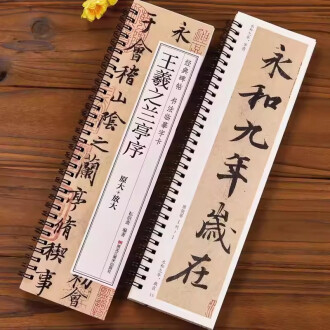 永
于會稽山陰之蘭亭脩稧事
初會
经典碑帖 书法临摹字卡
王羲之兰亭序
原大·放大
永和九年歲在